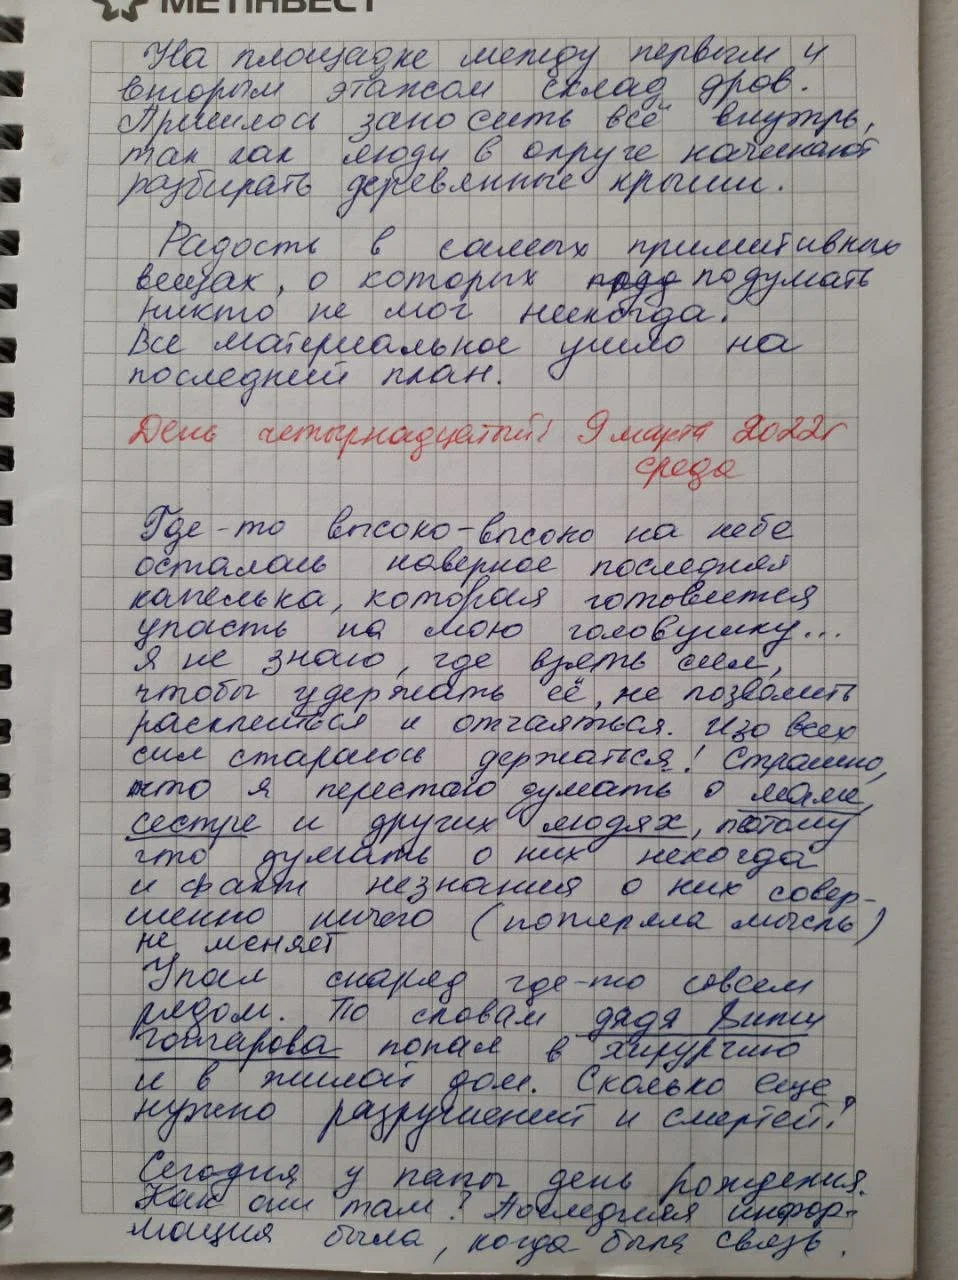 МЕТІНВЕСТ
На площадке между первым и
вторым этажом склад дров.
Пришлось заносить всё внутрь,
так как люди в округе начинают
разбирать деревянные крыши.
Радость в самых примитивных
вещах, о которых подумать
никто не мог некогда.
Все материальное ушло на
последний план.
День четырнадцатый! 9 марта 2022г
среда
Где-то высоко-высоко на небе
осталась наверное последняя
капелька, которая готовится
упасть на мою головушку...
Я не знаю, где взять сил,
чтобы удержать её, не позволить
расклеиться и отчаяться. Изо всех
сил стараюсь держаться! Страшно,
что я перестаю думать о маме,
сестре и других людях, потому
что думать о них некогда
и факт незнания о них совер-
шенно ничего (потеряла мысль)
не меняет
Упал снаряд где-то совсем
рядом. По словам дядя Вити
Гончарова попал в хирургию
и в жилой дом. Сколько еще
нужно разрушений и смертей?
Сегодня у папы день рождения.
Как они там? Последняя инфор-
мация была, когда была связь.